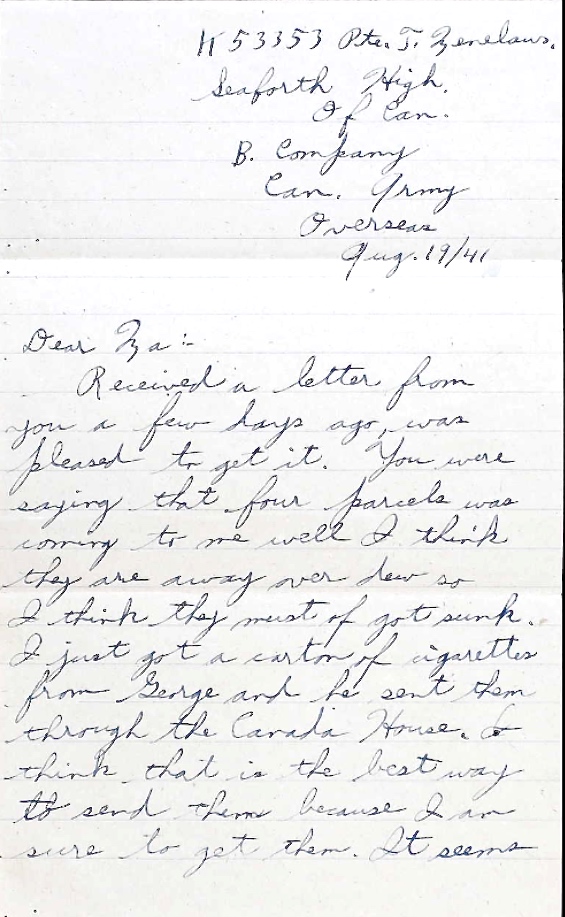 K 53353 Pte. J. Zenelaws.
Seaforth High.
Of Can.
B. Company
Can. Army
Overseas
Aug. 19/41
Dear Za:-
Received a letter from
you a few days ago, was
pleased to get it. You were
saying that four parcels was
coming to me well I think
they are away over dew so
I think they must of got sunk.
I just got a carton of cigarettes
from George and he sent them
through the Canada House. I
think that is the best way
to send them because I am
sure to get them. It seems